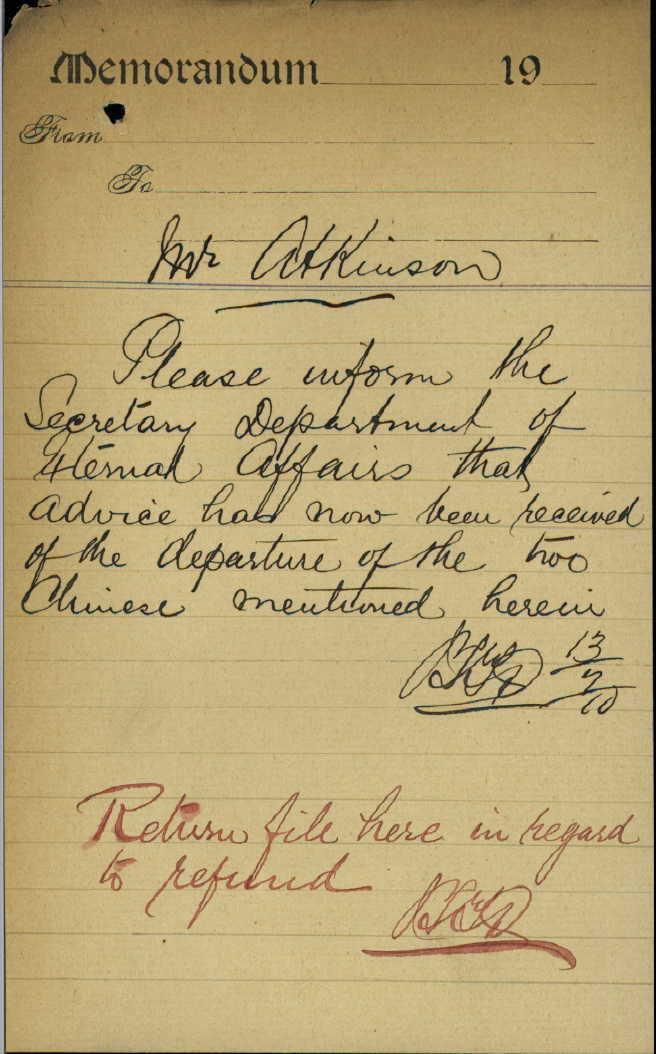 Memorandum 19
From
To
Mr Atkinson
Please inform the
Secretary Department of
Xternal Affairs that
advice has now been received
of the departure of the two
Chinese mentioned herein
13
7
10
Return file here in regard
to refund